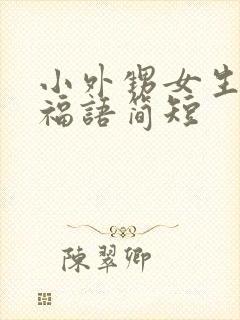 小外甥女生
福語简短
陳翠卿